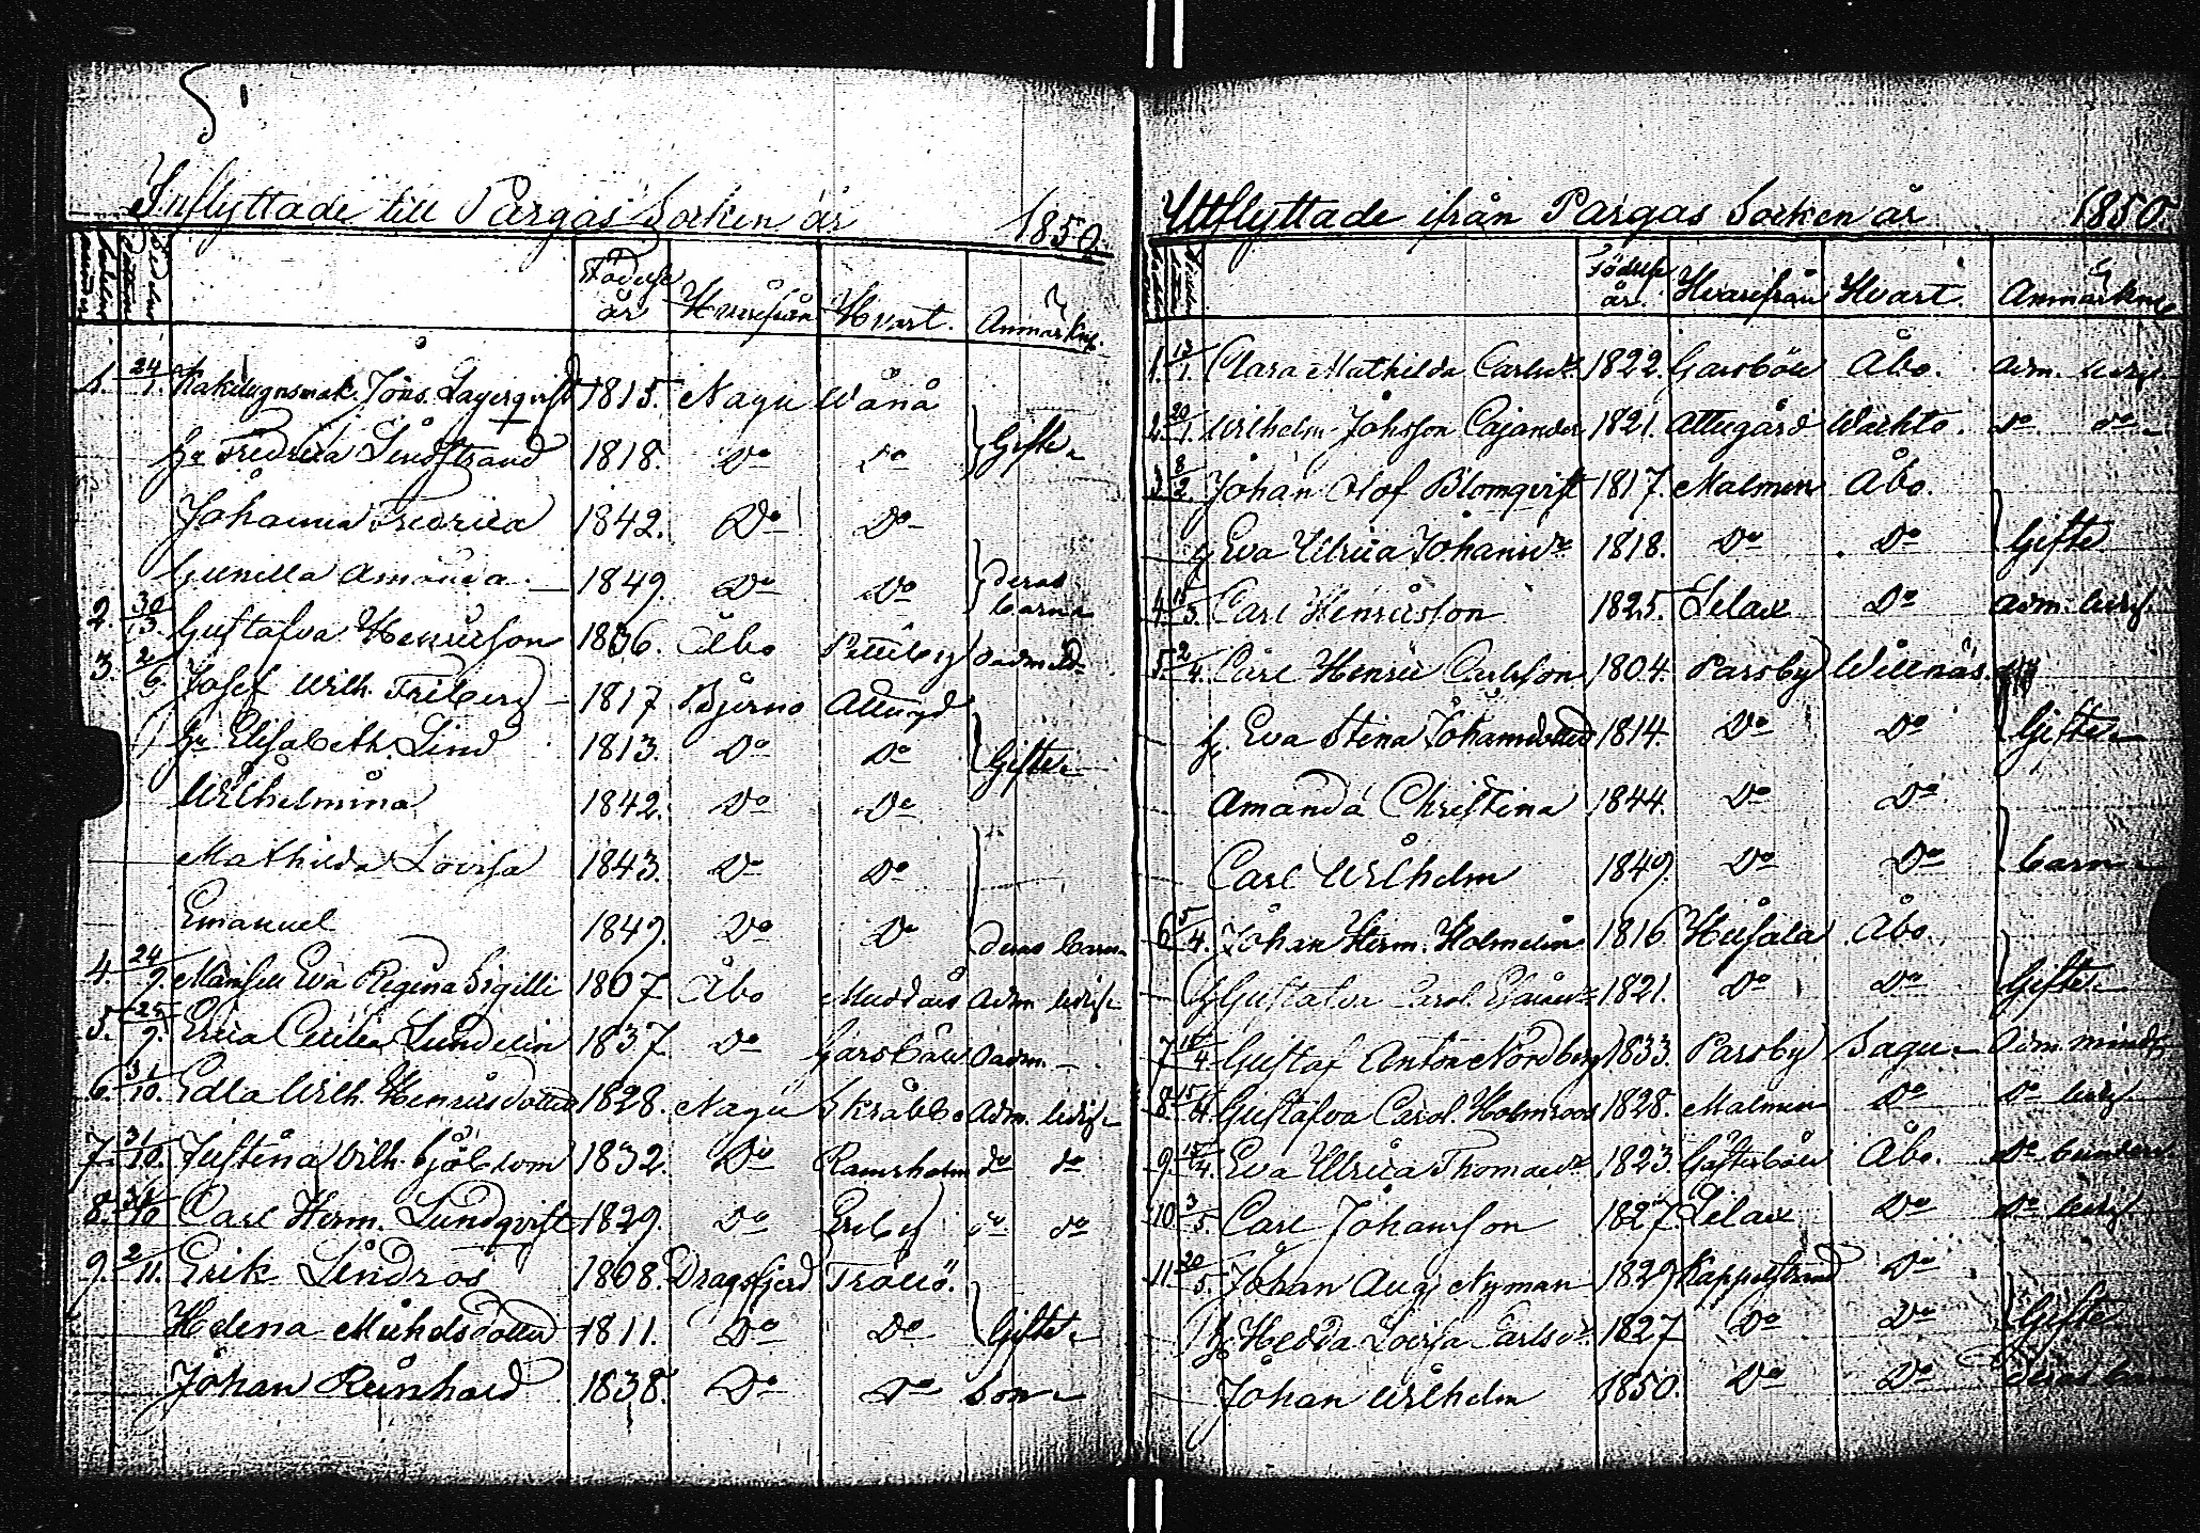 Inflyttade till Pargas Socken år 1850.
Födelse år Hvarifrån Hvart. Anmärkng.
1. 24/1. Kakelugnsmak. Jöns. Lagerqvist 1815. Nagu Wånå
hr Fredrica Lindstrand 1818. Do Do Gifte
Johanna Fredrica 1842. Do Do
Gunilla Amanda 1849. Do Do Deras barn
2. 30/3. Gustafva Henricson 1836. Åbo Pettibÿ oadmitt.
3. 2/6 Josef Wilh. Friberg 1817 Bjerno Attugd
hr Elisabeth Lind 1813. Do Do Gifte
Wilhelmina 1842. Do Do
Mathilda Lovisa 1843. Do Do
Emanuel 1849. Do Do deras barn
4. 24/9. Mamsell Eva Regina Sigilli 1807 Åbo Muddais adm ledig
5. 25/9. Erica Cecilia Lundelin 1837 Do Garsböle oadm.
6. 31/10. Edla Wilh. Henricsdotter 1828. Nagu Skräbbo Adm. ledig
7. 31/10. Justina Wilh. Sjöblom 1832. Do Ramsholm do do
8. 31/10 Carl Herm. Lundqvist 1829. Do Ersby do do
9. 2/11. Erik Lindros 1808. Dragsfjerd Trollö.
Helena Michelsdotter 1811. Do Do Gifte
Johan Reinhard 1838. Do Do Son
Utflyttade ifrån Pargas Socken år 1850.
Födelse år. Hvarifrån Hvart. Anmärkng
1. 13/1. Clara Mathilda Carlsdr 1822. Garsböle Åbo. adm. ledig
2. 20/1. Wilhelm Johsson Cajander 1821. Attugård Wachto. do do
3. 8/2. Johan Olof Blomqvist 1817. Malmen Åbo.
h Eva Ulrica Johansdr 1818. Do Do Gifte
4. 15/3. Carl Henricsson 1825. Lelax Do adm. ledig.
5. 2/4. Carl Henric Carlsson 1804. Parsby Willnäs
h. Eva Stina Johansdotter 1814. Do Do Gifte
Amanda Christina 1844. Do Do
Carl Wilhelm 1849. Do Do barn
6. 5/4. Johan Herm. Holmelin 1816 Heisala Åbo.
h Gustafva Carol. 1821. Do Do Gifte
7. 15/4. Gustaf Anton Nordberg 1833. Parsby Sagu Adm. mindr
8. 15/4. Gustafva Carol. Holmroos 1828. Malmen Do Do ledig
9. 15/4. Eva Ulrica Thomasdr 1823. Gästerböle Åbo. Do
10. 3/5. Carl Johansson 1827 Lelax Do Do ledig
11. 20/5. Johan Aug. Nyman 1829 Kappelstrand Do
h Hedda Lovisa Carlsdr 1827 Do Do Gifte
Johan Wilhelm 1850. Do Do deras barn